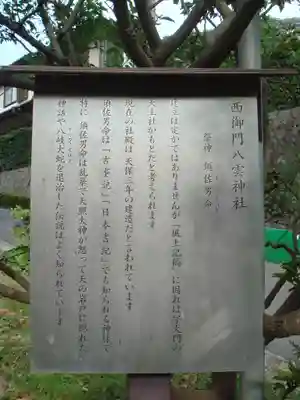 西御門八雲神社
祭神 須佐男命
は定かではありませんが「風土記稿」に因れば字大門の
天王社がもとだと考えられます
現在の社殿は天保三年の建造だと言われています
須佐男命は「古事記」「日本書記」でも知られる神様で
特に 須佐男命は乱暴で天照大神が怒って天の岩戸に隠れた
神話や八岐大蛇を退治した伝説はよく知られています